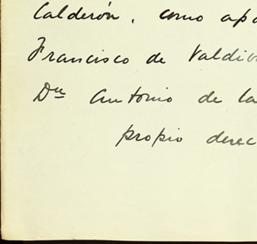 Calderón, como apa
Francisco de Valdiv
Dn Antonio de la
propio derec